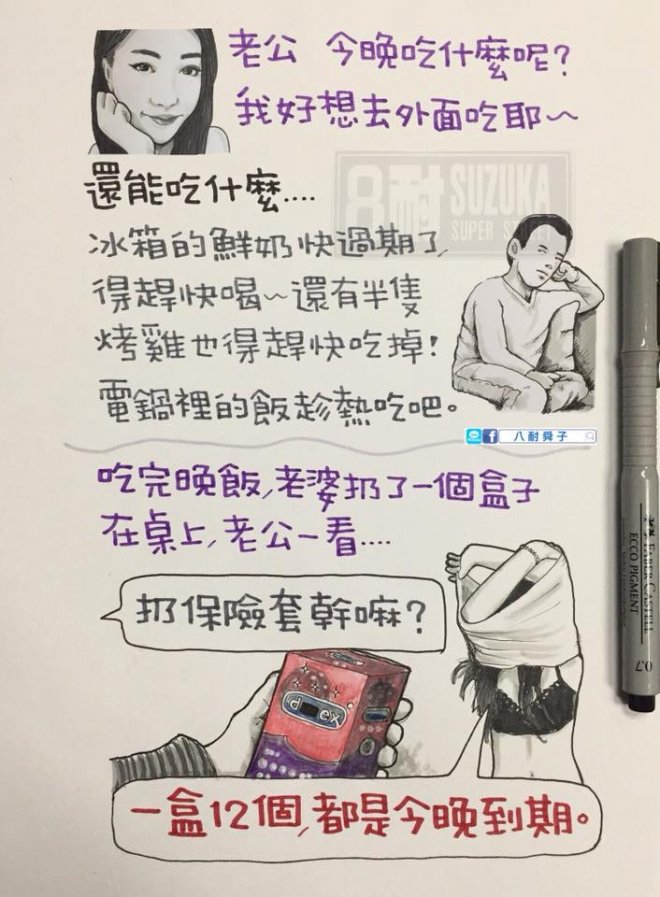 老公 今晚吃什麼呢?
我好想去外面吃耶~
還能吃什麼....
8耐 SUZUKA
SUPER
冰箱的鮮奶快過期了,
得趕快喝~還有半隻
烤雞也得趕快吃掉!
電鍋裡的飯趁熱吃吧。
八耐舜子
吃完晚飯,老婆扔了一個盒子
在桌上,老公一看....
扔保險套幹嘛?
d ex
一盒12個,都是今晚到期。
FABER-CASTELL
ECCO PIGMENT
0.7